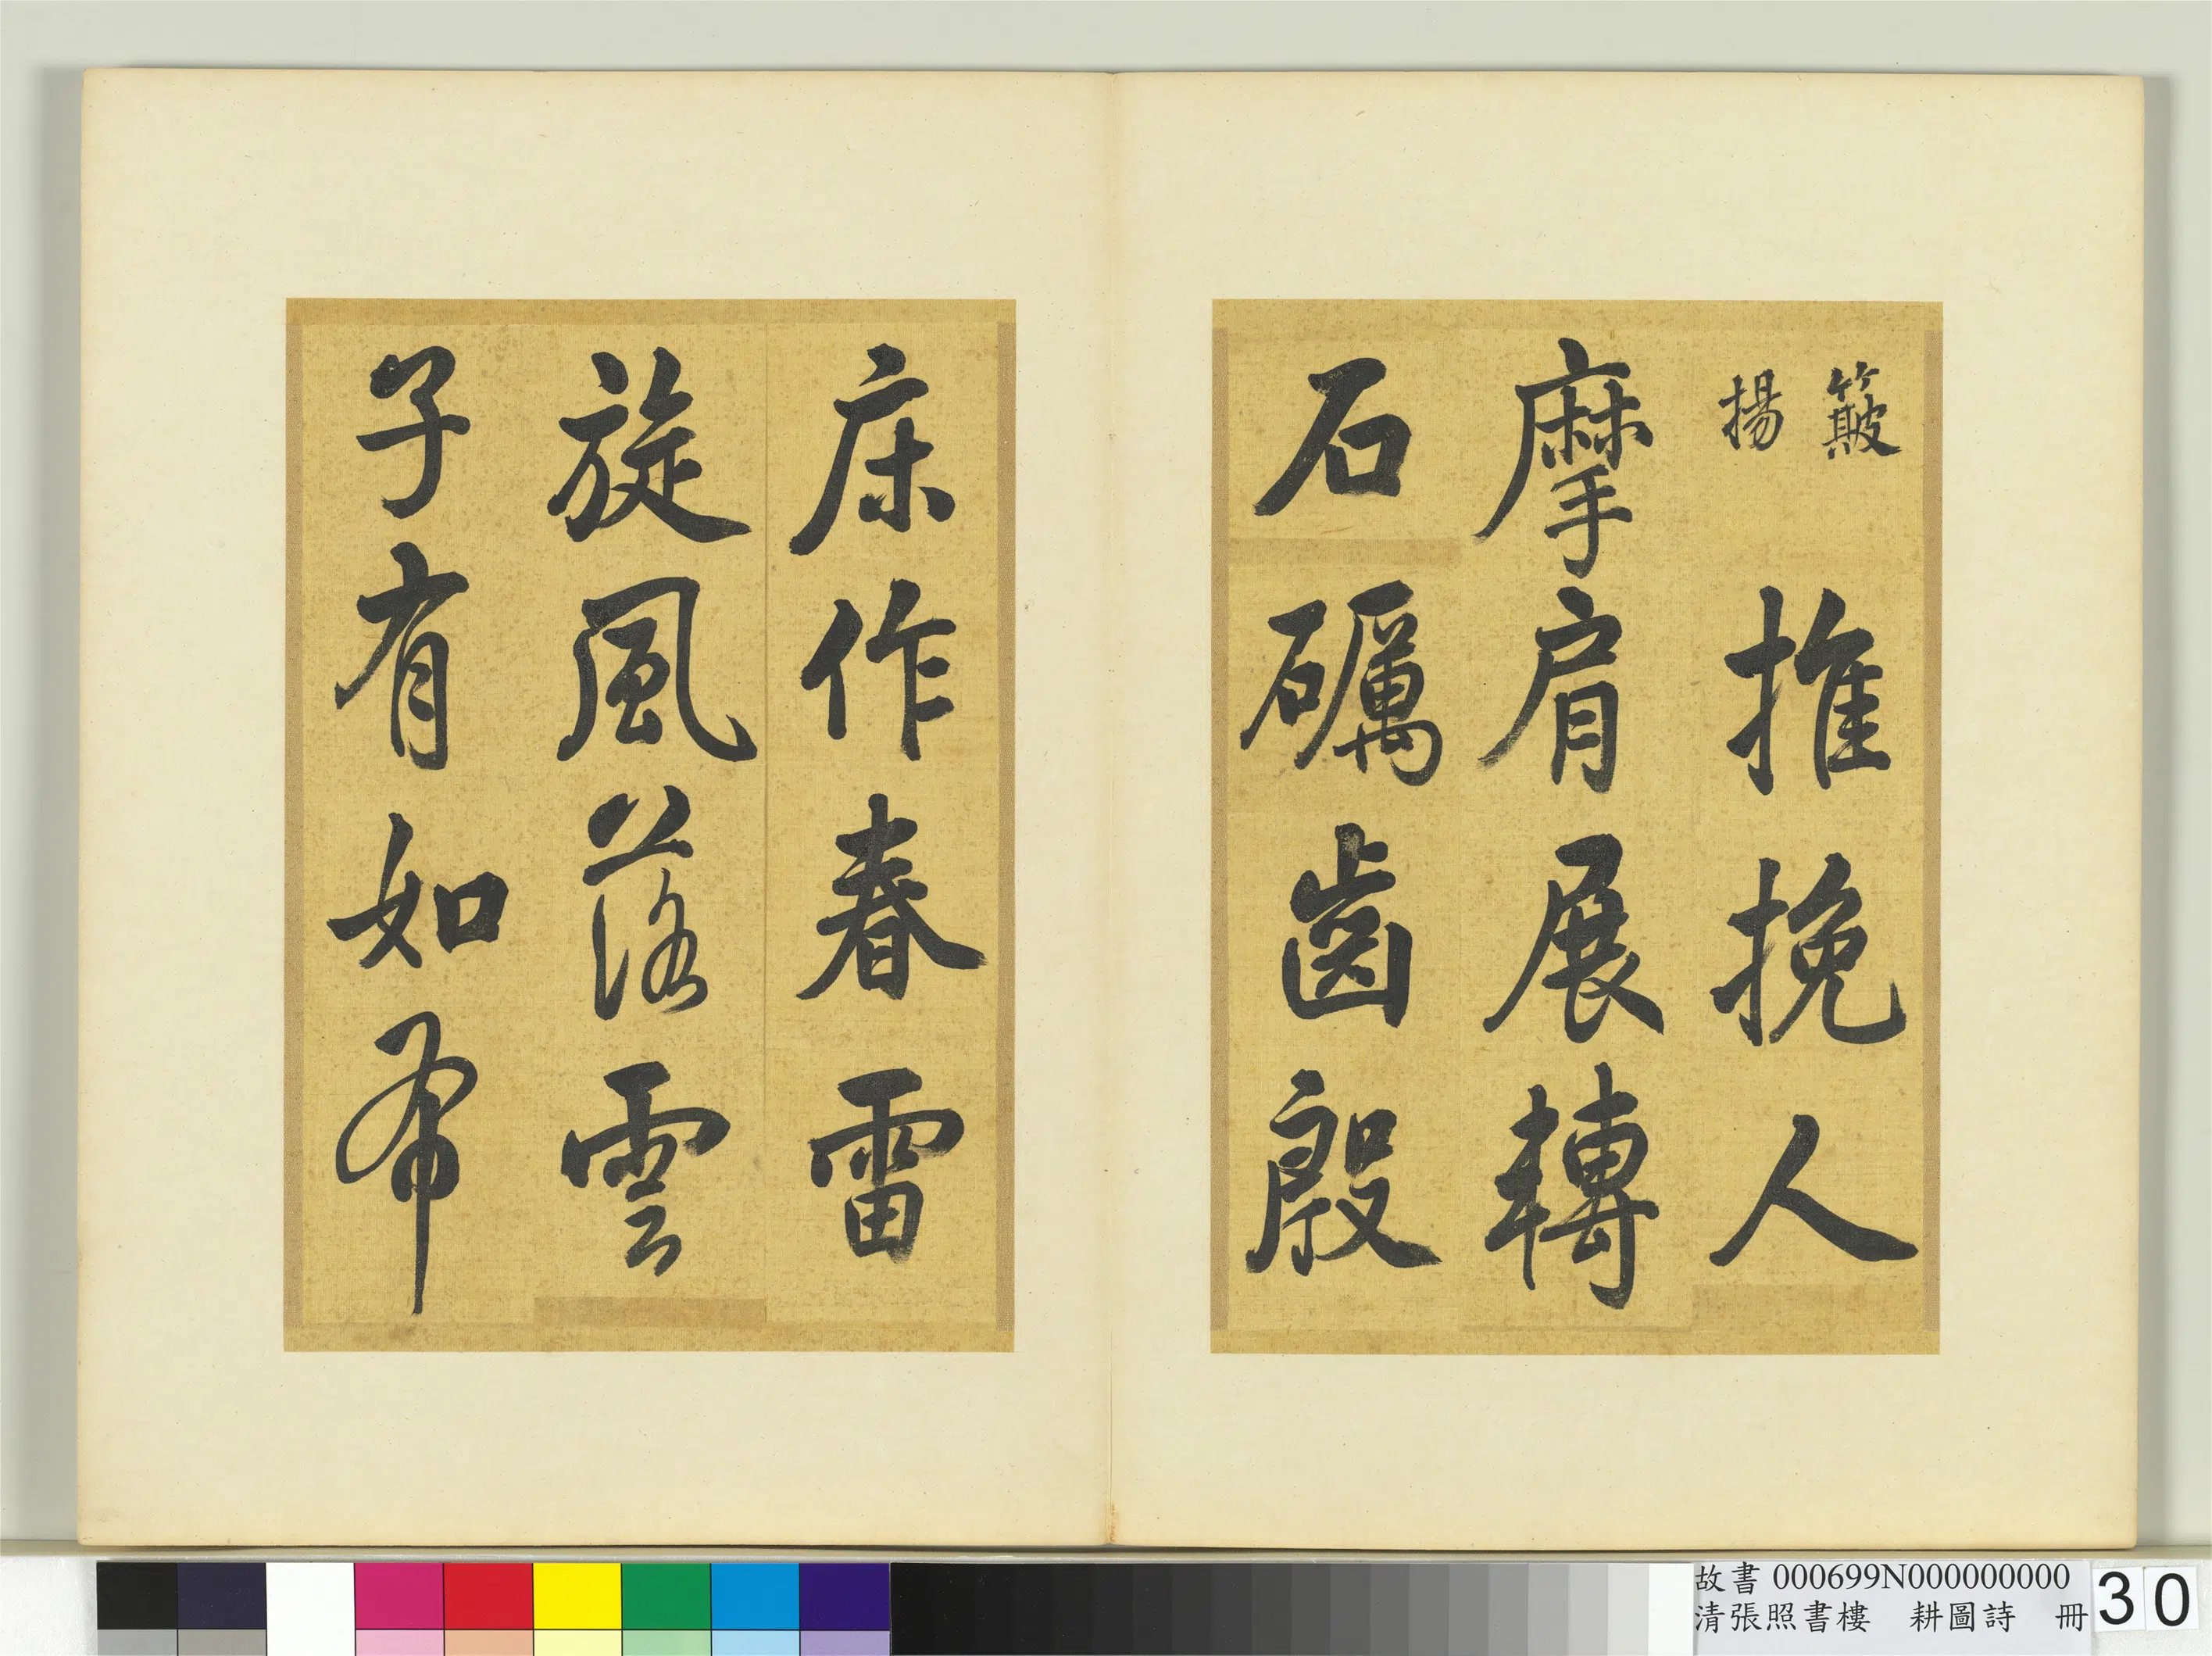 簸
揚
推挽人
摩肩展轉
石礪齒殷
床作春雷
旋風落雲
子有如布
故書 000699N000000000
清張照書樓 耕圖詩 冊
30